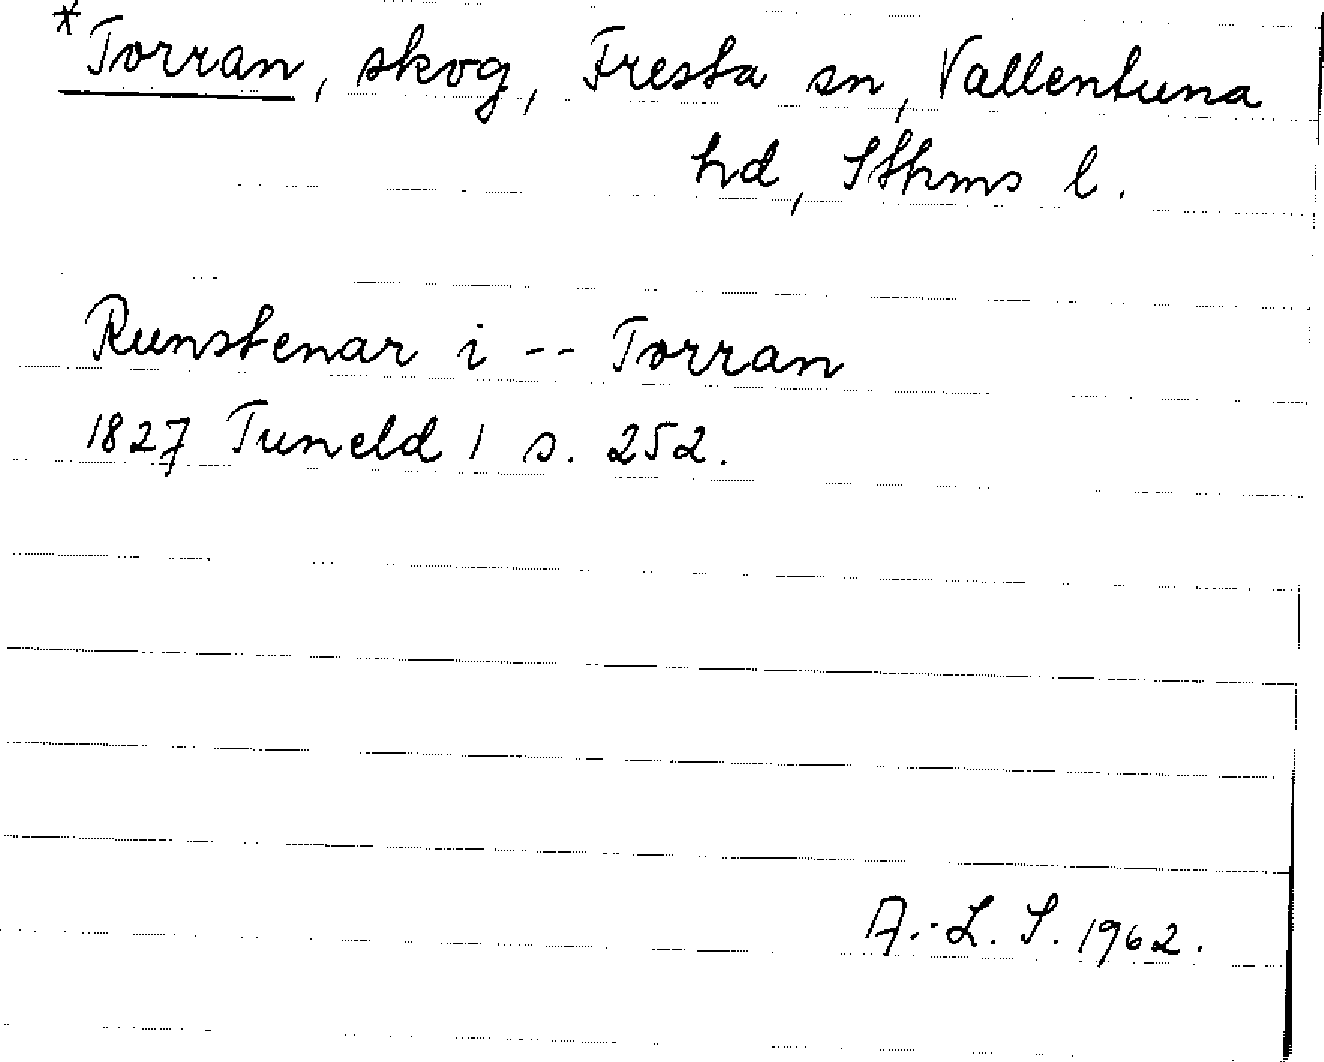 *Torran, skog, Fresta sn, Vallentuna
hd, Sthms l.
Runstenar i -- Torran
1827 Tuneld 1 s. 252.
A.-L. S. 1962.